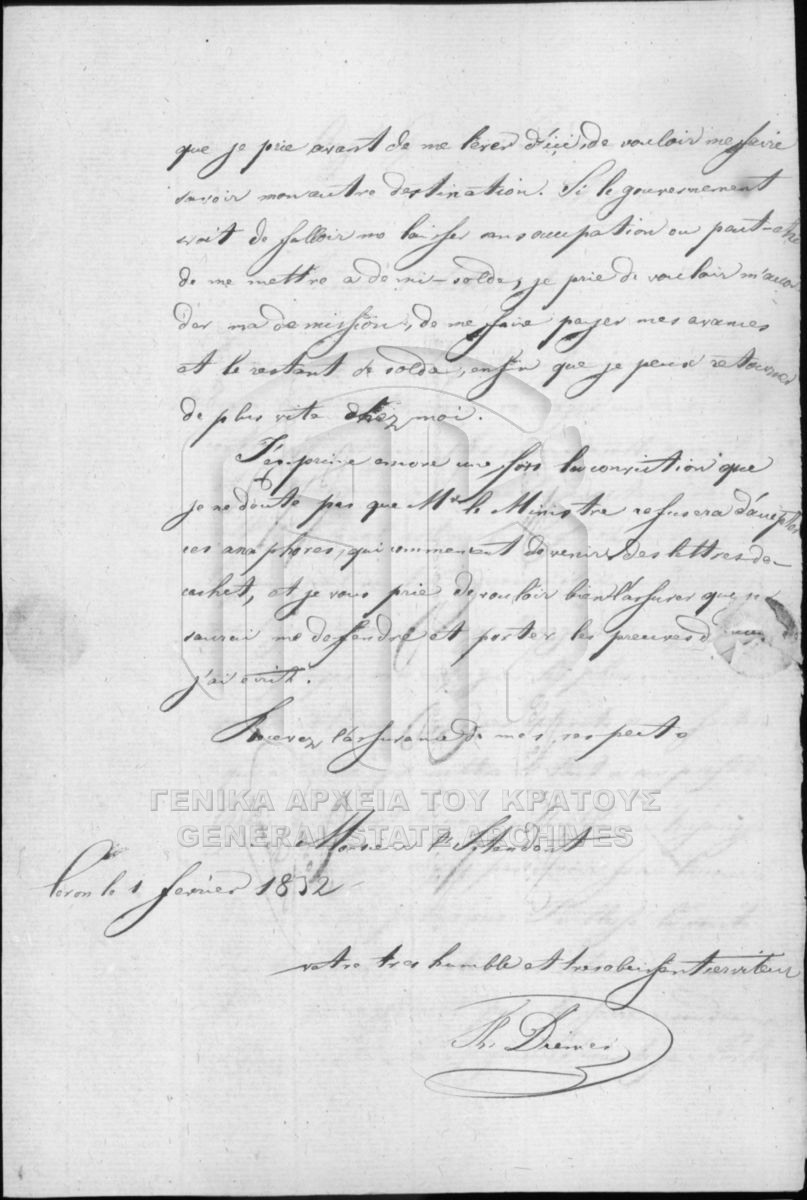 que je prie avant de me lever d'ici, de vouloir me faire
savoir mon autre destination. Si le gouvernement
avait de falloir me laisser sans occupation ou peut-etre
de me mettre a demi-solde, je prie de vouloir m'accor
der ma demission, de me faire payer mes avances
et le restant de solde, enfin que je peux retourner
de plus vite chez moi.
J'exprime encore une fois la conviction que
je ne doute pas que Mr le Ministre refusera d'accepter
ces anaphores, qui commencent devenir des lettres de
cachet, et je vous prie de vouloir bien l'assurer que je
saurai me defendre et porter les preuves
j'ai ecrit.
Recevez l'assurance de mes respects
Monsieur
le 1 fevrier 1832
votre tres humble et tres obeissent serviteur
ΓΕΝΙΚΑ ΑΡΧΕΙΑ ΤΟΥ ΚΡΑΤΟΥΣ
GENERAL STATE ARCHIVES